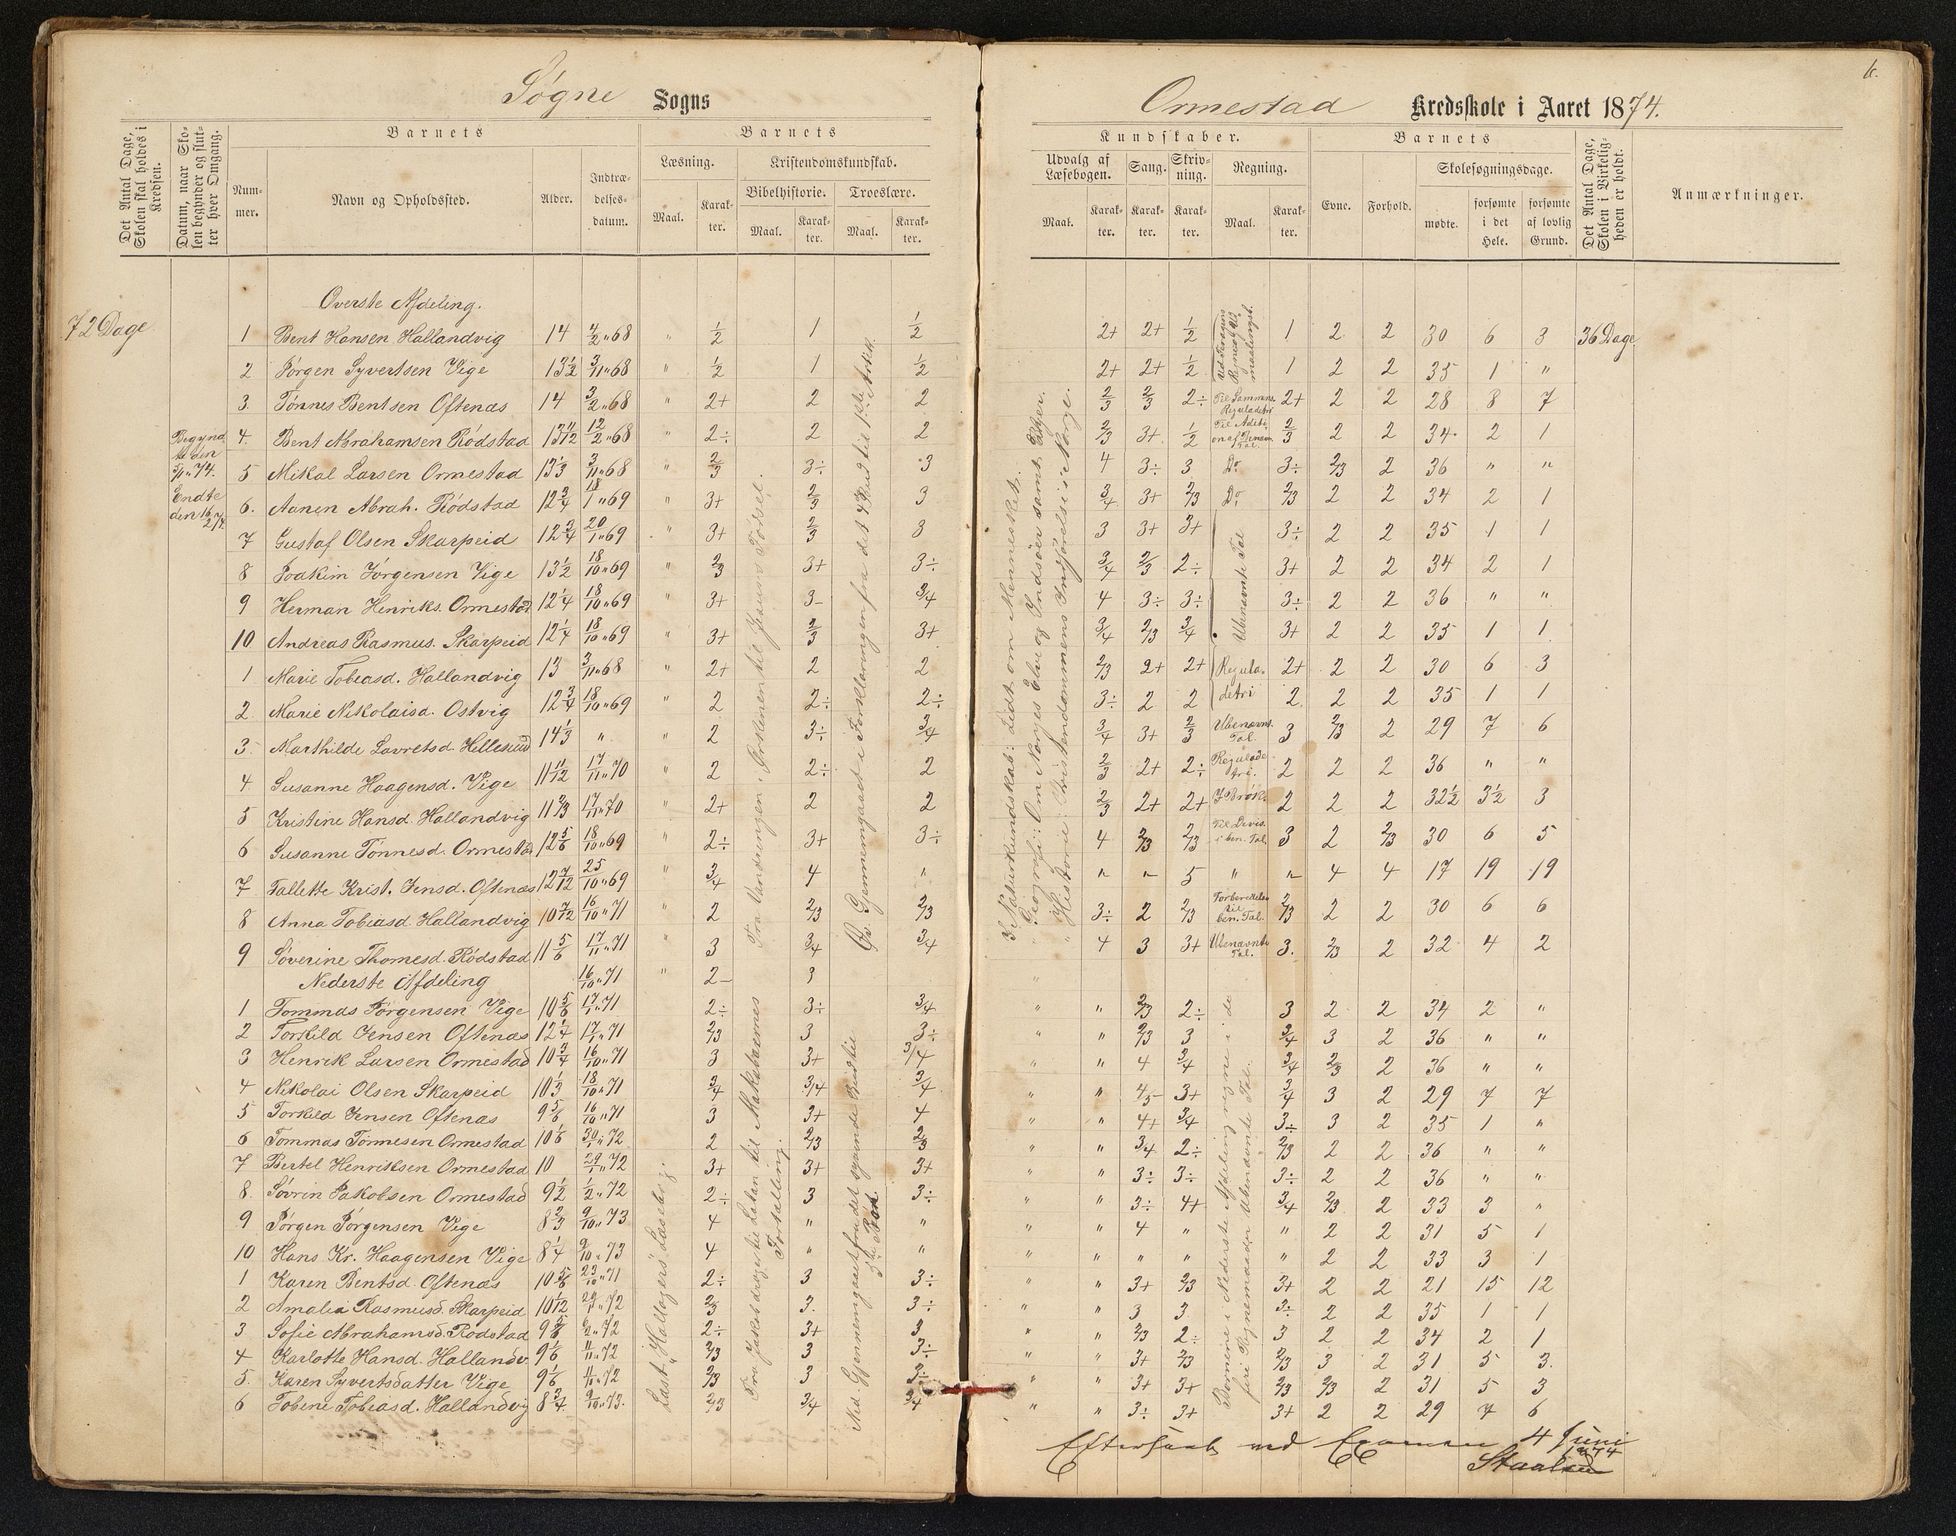 Søgne Sogns
Det Antal Dage, Skolen skal holdes i Kredsen.
Datum, naar Skolen begynder og slutter hver Omgang.
Barnets
Nummer.
Navn og Opholdssted.
Alder.
Indtrædelsesdatum.
Barnets
Læsning.
Maal.
Karakter.
Kristendomskundskab.
Bibelhistorie.
Maal.
Karakter.
Troeslære.
Maal.
Karakter.
72 Dage
Begynd
den
5/1 74.
Endte
den 16/2 74.
Overste Afdeling.
1 Bent Hansen Hallandvig 14 4/2 "68 " 1/2 1 1/2
2 Jørgen Syvertsen Vige 13 1/2 3/11 "68 " 1/2 1 1/2
3. Tønnes Bentsen Oftenæs 14 3/2 "68 " 2+ 2 2
4. Bent Abrahamsen Rødstad 13 11/12 12/2 "68 " 2÷ 2 2
5 Mikal Larsen Ormestad 13 1/3 3/11 "68 " 2/3 3÷ 3
6. Aanen Abrah. Rødstad 12 3/4 18/1 "69 " 3+ 2/3 3
7 Gustaf Olsen Skarpeid 12 3/4 20/1 "69 " 3+ 2/3 3
8 Joakim Jørgensen Vige 13 1/2 18/10 "69 " 2/3 3+ 3÷
9 Herman Henriks. Ormestad 12 1/4 18/10 "69 " 3+ 3- 3/4
10 Andreas Rasmus. Skarpeid 12 1/4 18/10 "69 " 3+ 2/3 3+
1 Marie Tobiasd. Hallandvig 13 3/11 "68 " 2+ 2 2
2 Marie Nikolaisd. Ostvig 12 3/4 18/10 "69 " 2 2÷ 2÷
3. Marthilde Lavretsd. Hellesund 14 1/3 " " 2 3÷ 3/4
4 Susanne Haagensd. Vige 11 11/12 17/11 "70 " 2 2÷ 2
5 Kristine Hansd. Hallandvig 11 2/3 17/11 "70 " 2+ 2 2
6 Susanne Tønnesd. Ormestad 12 5/6 18/10 "69 " 2÷ 3+ 3÷
7 Tallette Krist. Jensd. Oftenæs 12 7/12 25/10 "69 " 3/4 4 "
8 Anna Tobiasd. Hallandvig 10 7/12 16/10 "71 " 2 2/3 2/3
9 Søverine Thomesd. Rødstad 11 5/6 17/11 "71 " 3 3/4 3/4
Nederste Afdeling 16/10 "71 " 2- 3
1 Tommas Jørgensen Vige 10 5/6 17/1 "71 2÷ 3÷ 3/4
2 Torkild Jensen Oftenæs 12 1/4 17/1 "71 2/3 3 3÷
3 Henrik Larsen Ormestad 10 3/4 16/10 "71 3 3+ 3/4
4 Nikolai Olsen Skarpeid 10 1/3 18/10 "71 3/4 3/4 3/4
5 Torkild Jensen Oftenæs 9 5/6 16/10 "71 3 3+ 4
6 Tommas Tønnesen Ormestad 10 1/6 30/1 "72 2 2/3 2/3
7 Bertel Henriksen Ormestad 10 29/1 "72 3+ 3+ 3+
8. Søvrin Jakobsen Ormestad 9 1/2 1/2 "72 2÷ 3 3÷
9 Jørgen Jørgensen Vige 8 2/3 9/10 "73 4 " "
10 Hans Kr. Haagensen Vige 8 1/4 9/10 "73 4 " "
1 Karen Bentsd. Oftenæs 10 5/6 23/10 "71 2÷ 3 3÷
2 Amalia Rasmusd. Skarpeid 10 1/12 29/1 "72 2/3 3. 3÷
3 Sofie Abrahamsd. Rødstad 9 5/6 6/2 "72 2÷ 3+ 3
4 Karlotte Hansd. Hallandv. 9 1/6 11/11 "72 2/3 3 3÷
5. Karen Syvertsdatter Vige 9 1/6 11/11 "72 2/3 3 3÷
6 Tobine Tobiasd. Hallandvig 8 3/4 9/10 "73. 2/3 3/4 3/4
Læst i Halloger's Læsebog.
Fra Vandringen i Ørkenen til Jesus Fødsel.
Fra Jakobs dage til Læren til Makabæernes
Fortælling.
Øv. Gjennemgaaet i Forklaringen fra det 4 Bud til 1ste Artikk.
Ned. Gjennemgaaet fra det syvende Bud til
3die Bøn.
Ormestad Kredsskole i Aaret 1874.
6.
Kundskaber.
Udvalg af Læsebogen.
Maal.
Karakter.
Sang.
Karakter.
Skrivning.
Karakter.
Regning.
Maal.
Karakter.
Barnets
Evne.
Forhold.
Skolesøgningsdage.
mødte.
forsømte i det Hele.
forsømte af lovlig Grund.
Det Antal Dage, Skolen i Virkeligheden er holdt.
Anmærkninger.
2+ 2+ 1/2 1 2 2 30 6 3 36 Dage
2+ 2+ 1/2 1 2 2 35 1 "
2/3 2/3 2÷ Til Sammens. Reguladetri 2+ 2 2 28 8 7
2/3 3+ 1/2 Til Additi- on af Benævn. Tal. 2/3 2 2 34 2 1
4 3÷ 3 Do 3÷ 2/3 2 36 " "
3/4 3+ 2/3 Do 2/3 2 2 34 2 1
3 3+ 3+ 3÷ 2 2 35 1 1
3/4 2/3 2÷ Ubenævnte Tal 3+ 2 2 34 2 1
4 3÷ 3÷ 3÷ 2 2 36 " "
3/4 2/3 3/4 3+ 2 2 35 1 1
2/3 2+ 2+ Regula- 2+ 2 2 30 6 3
3÷ 2 2 detri 2 2 2 35 1 1
3/4 3+ 2/3 Ubenævnt. Tal. 3 2/3 2 29 7 6
2/3 2+ 2÷ Regulade tri. 2 2 2 36 " "
2/3 2+ 2+ I Brøk. 2 2 2 32 1/2 3 1/2 3
4 2/3 2/3 Til Divis. i ben. Tal. 3 2 2/3 30 6 5
" " 5 " " 4 4 17 19 19
3÷ 2 2/3 Forberedelse til ben. Tal. 2/3 2 2 30 6 6
4 3 3+ Ubenævnte Tal. 3. 2/3 2 32 4 2
"
" " 2/3 2÷ 3 2 2 34 2 "
" " 2/3 3 3/4 3 2 36 " "
" " 4 3/4 3/4 2/3 2 36 " "
" " 4/5 3+ 3/4 3 2 29 7 7
" " 4+ 3/4 3÷ 3 2 35 1 "
" " 3/4 2÷ 2/3 2 2 36 " "
" " 3÷ 3÷ 3÷ 2 2 36 " "
" " 3÷ 4+ 3/4 2/3 2 33 3 "
" " 4 " " 2 2 31 5 1
" " " " " 2 2 33 3 1
" " 3+ 2/3 3+ 2 2 21 15 12
" " 3 3 3÷ 2 2 35 1 1
" " 2/3 2÷ 3 2 2 34 2 1
" " 3+ 2/3 2/3 3 2 31 5 3.
" " 3+ 3+ 2/3 2/3 2 31 5 3
" " 3÷ 3+ 3+ 2 2 29 7 6
I Naturkundskab: Lidt om Mennesket.
" Geografi: Om Norges Elve og Indsøer samt Øer.
" Historie: Kristendommens Indførelse i Norge.
Børnene i Nederste Afdeling regne i de
fire Regnemaader Ubenævnte Tal.
Efterseet ved Examen 4 Juni
1874